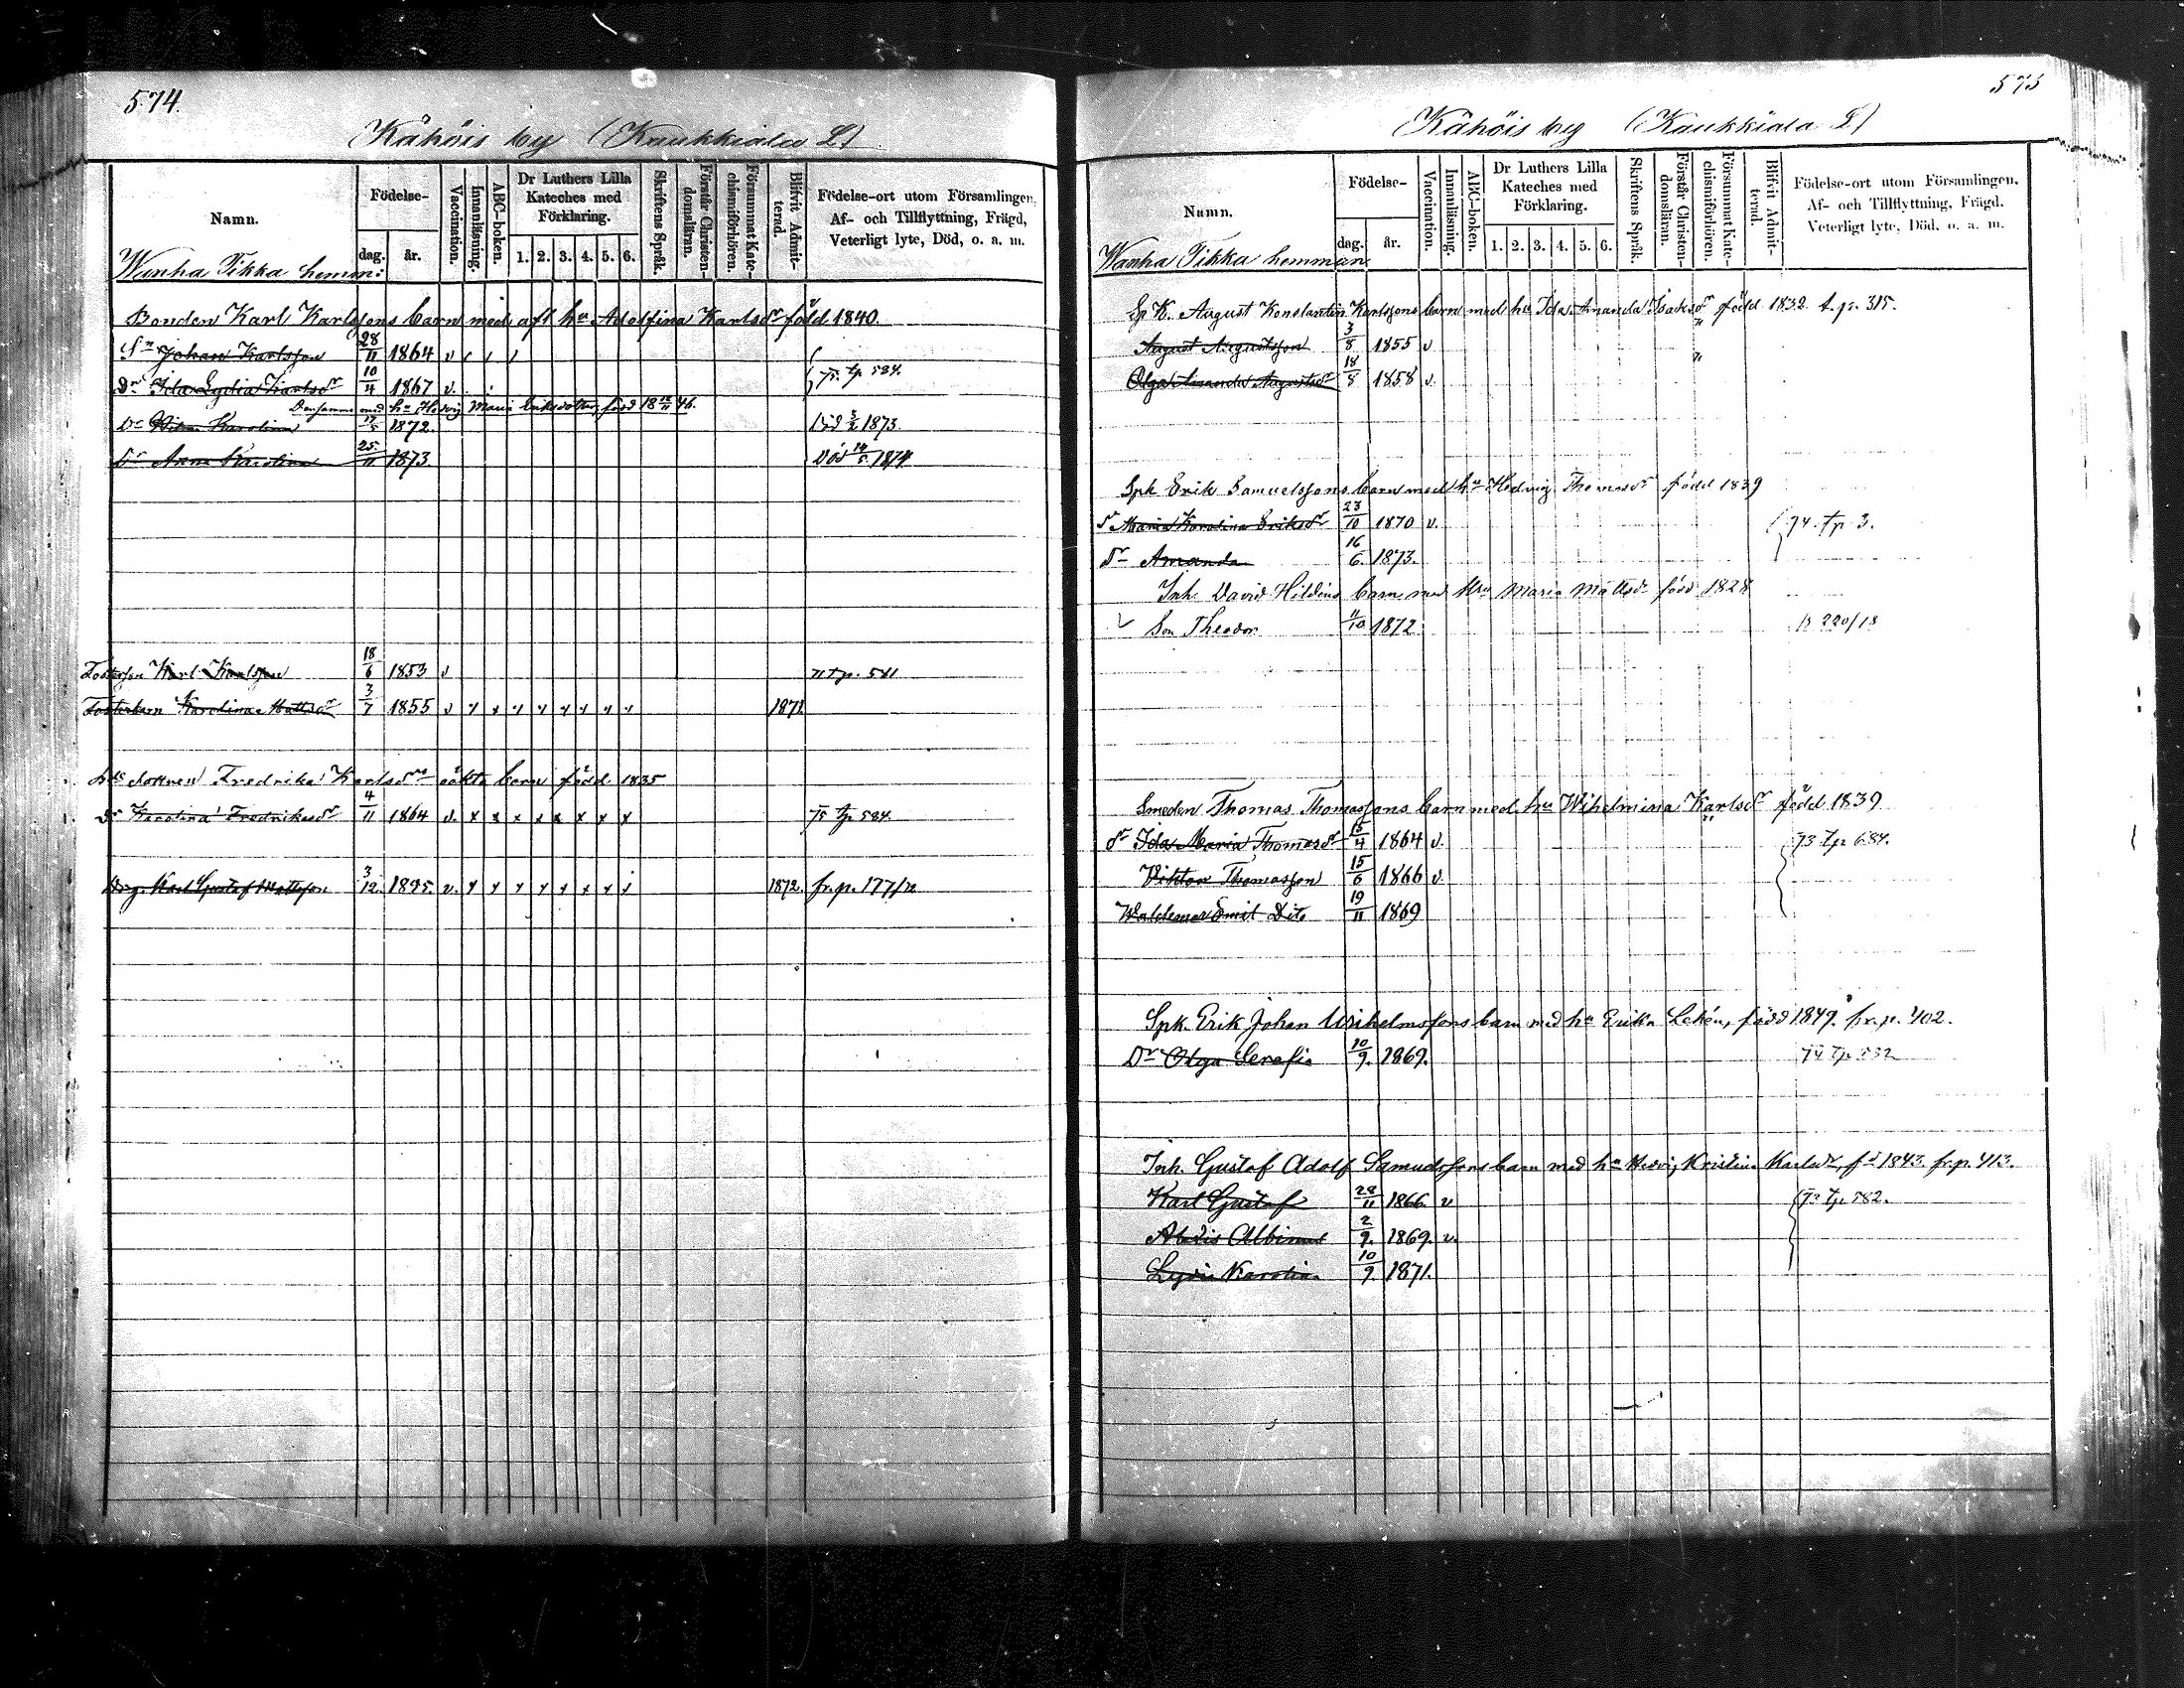 574.
Kähöis by (Kaukkiala L)
Namn.
Födelse-
dag.
år.
Vaccination.
Innanläsning.
ABC-boken.
Dr Luthers Lilla
Kateches med
Förklaring.
1. 2. 3. 4. 5. 6.
Skriftens Språk.
Förstår Christen-
domsläran.
Försummat Kate-
chismiförhören.
Blifvit Admit-
terad.
Födelse-ort utom Församlingen,
Af- och Tillflyttning, Frägd,
Veterligt lyte, Död, o. a. m.
Wanha Tikka hemm:
Bonden Karl Karlssons barn med afl hu Adolfina Karlsdr född 1840.
Sn Johan Karlsson 28/11 1864 v
Dr Ida Lydia Karlsdr 10/4 1867 v. 75. tp. 584.
Densamme med hu Hedvig Maria Eriksdotter, född 18 /11 46.
Dr Karolina 1872. Död 1873.
Dr Anna Karolina 25/11 1873. Död 1874
Fosterson Karl Karlsson 18/6 1853 v 71 tp. 581
Fosterbarn Karolina Mattsdr 3/7 1855 v x x x x x x x x 1871.
Fredrika Karlsdrs oäkta barn född 1835
Dr Karolina Fredriksdr 4/11 1864 v. x x x x x x x x 75 tp 584.
Drg. Karl Gustaf Mattsson 3/12. 1855. v. x x x x x x x x 1872. fr. p. 177/72
575
Kähöis by (Kaukkiala L)
Namn.
Födelse-
dag.
år.
Vaccination.
Innanläsning.
ABC-boken.
Dr Luthers Lilla
Kateches med
Förklaring.
1. 2. 3. 4. 5. 6.
Skriftens Språk.
Förstår Christen-
domsläran.
Försummat Kate-
chismiförhören.
Blifvit Admit-
terad.
Födelse-ort utom Församlingen,
Af- och Tillflyttning, Frägd,
Veterligt lyte, Död, o. a. m.
Wanha Tikka hemman.
Sp K. August Konstantin Karlssons barn med hu Ida Amanda Isaksdr född 1832. t. p. 315.
August Augustsson 3/8 1855 v
Olga Amanda Augustsdr 18/8 1858 v.
Spk Erik Samuelssons barn med hu Hedvig Thomasdr född 1839
Dr Maria Karolina Eriksdr 23/10 1870 v. 74. tp 3.
Dr Amanda 16/6. 1873.
Inh. David Hildins barn med hu Maria Mattsdr född 1828
Son Theodor 11/10 1872.
Smeden Thomas Thomassons barn med hu Wilhelmina Karlsdr född 1839
Dr Ida Maria Thomasdr 15/4 1864 v. 73 tp 684.
Viktor Thomasson 15/6 1866 v.
Waldemar Emil Dito 19/11 1869
Spk. Erik Johan Wilhelmssons barn med hu Erika Lehén, född 1849. fr. p. 402.
Dr Olga Serafia 10/9. 1869. 74 tp
Inh. Gustaf Adolf Samuelssons barn med hu Hedvig Kristina Karlsdr, fd 1843. fr. p. 413.
Karl Gustaf 28/11 1866. v 73 tp 582.
Albinus 2/9. 1869. v.
Lydia Karolina 10/9. 1871.